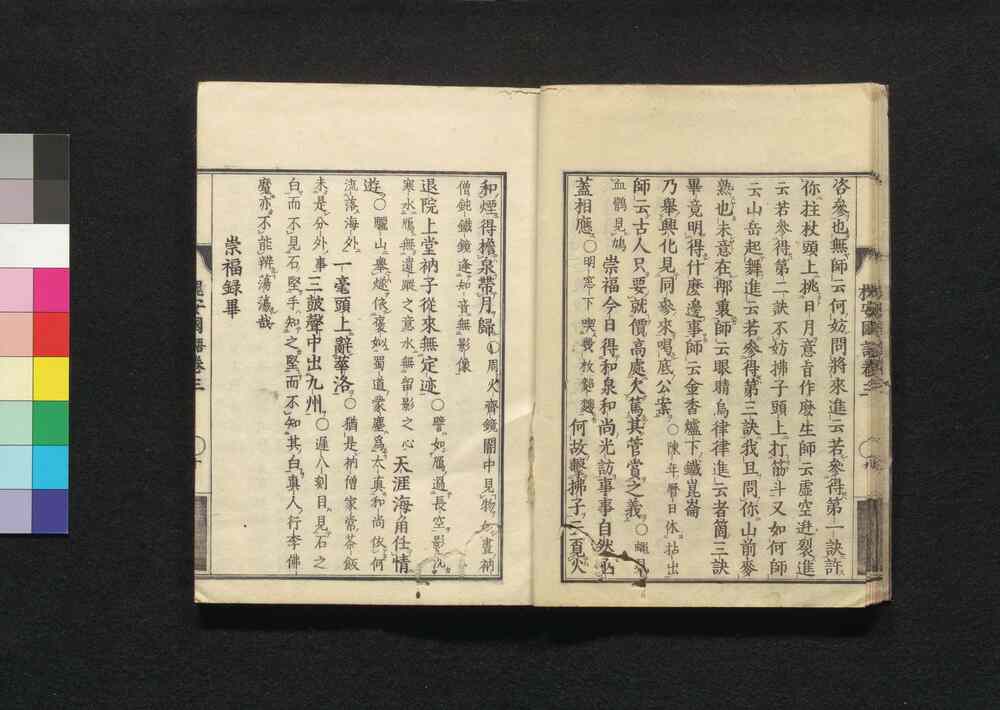 咨參也無師云何妨問將來進云若參得第一訣許
你拄杖頭上挑日月意旨作麼生師云虛空迸裂進
云若參得第二訣不妨拂子頭上打筋斗又如何師
云山岳起舞進云若參得第三訣我且問你山前麥
熟也未意在那裏師云眼睛烏律律進云者箇三訣
畢竟明得什麼邊事師云金香爐下鐵崑崙
乃舉興化見同參來喝底公案○陳年曆日休拈出
師云古人只要就價高處大篤其菅賞之義○
血鶻見鳩 崇福今日得和泉和尚光訪事事自然
蓋相應○明窓下 何故擊拂子云
和煙得檐泉帶月歸○周火齊鏡闇中見物如晝衲
僧鈍鐵鏡逢知音無影像
退院上堂衲子從來無定迹○譬如雁過長空影沉
寒水雁無遺蹤之意水無留影之心 天涯海角任情
遊○驪山擧燧依褒姒蜀道蒙塵爲太真和尚依何
流落海外 一毫頭上辭華洛○猶是衲僧家常茶飯
未是分外事 三皷聲中出九州○遲八刻目見石之
白而不見石堅手知之堅而不知其白眞人行李佛
魔亦不能辨蕩蕩哉
崇福録畢